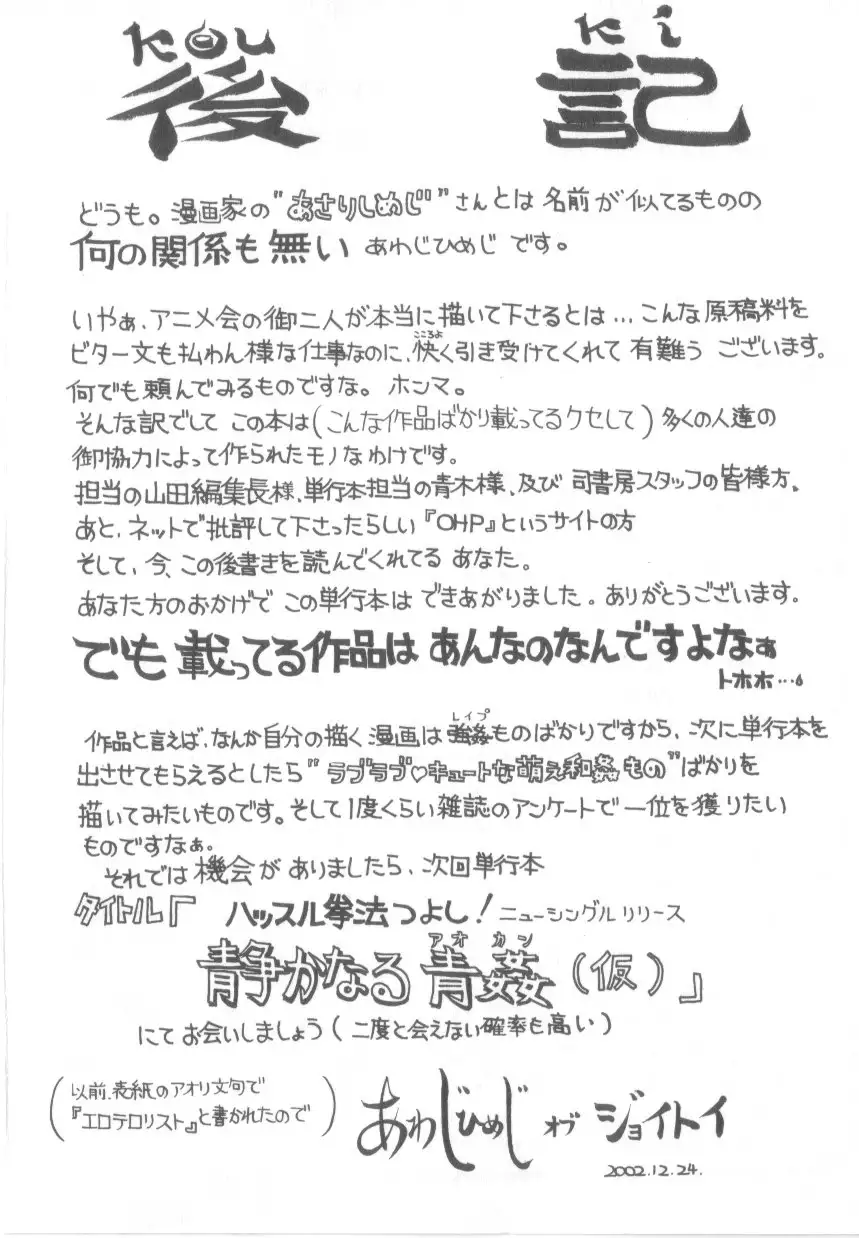 kou ki
後 記
どうも。漫画家の“あさりしめじ”さんとは 名前が似てるものの
何の関係も無い あわじひめじ です。
いやぁ、アニメ会の御二人が本当に描いて下さるとは…こんな原稿料を
ビター文も払わん様な仕事なのに、快く引き受けてくれて 有難う ございます。
こころよ
何でも頼んでみるものですな。ホンマ。
そんな訳でして この本は(こんな作品ばかり載ってるクセして)多くの人達の
御協力によって作られたモノなわけです。
担当の山田編集長様、単行本担当の青木様、及び 司書房スタッフの皆様方。
あと、ネットで批評して下さったらしい『OHP』というサイトの方
そして、今、この後書きを読んでくれてる あなた。
あなた方のおかげで この単行本は できあがりました。ありがとうございます。
でも 載ってる作品は あんなのなんですよなぁ
トホホ…。
レイプ
作品と言えば、なんか自分の描く漫画は強姦ものばかりですから、次に単行本を
出させてもらえるとしたら“ラブラブ♡キュートな萌え和姦もの”ばかりを
描いてみたいものです。そして1度くらい雑誌のアンケートで一位を獲りたい
ものですなぁ。
それでは 機会が ありましたら、次回単行本
タイトル『 ハッスル拳法つよし! ニューシングル リリース
アオ カン
静かなる 青姦(仮)』
にて お会いしましょう(二度と会えない確率も高い)
(以前、表紙のアオリ文句で
『エロテロリスト』と書かれたので)
あわじひめじ オブ ジョイトイ
2002.12.24.